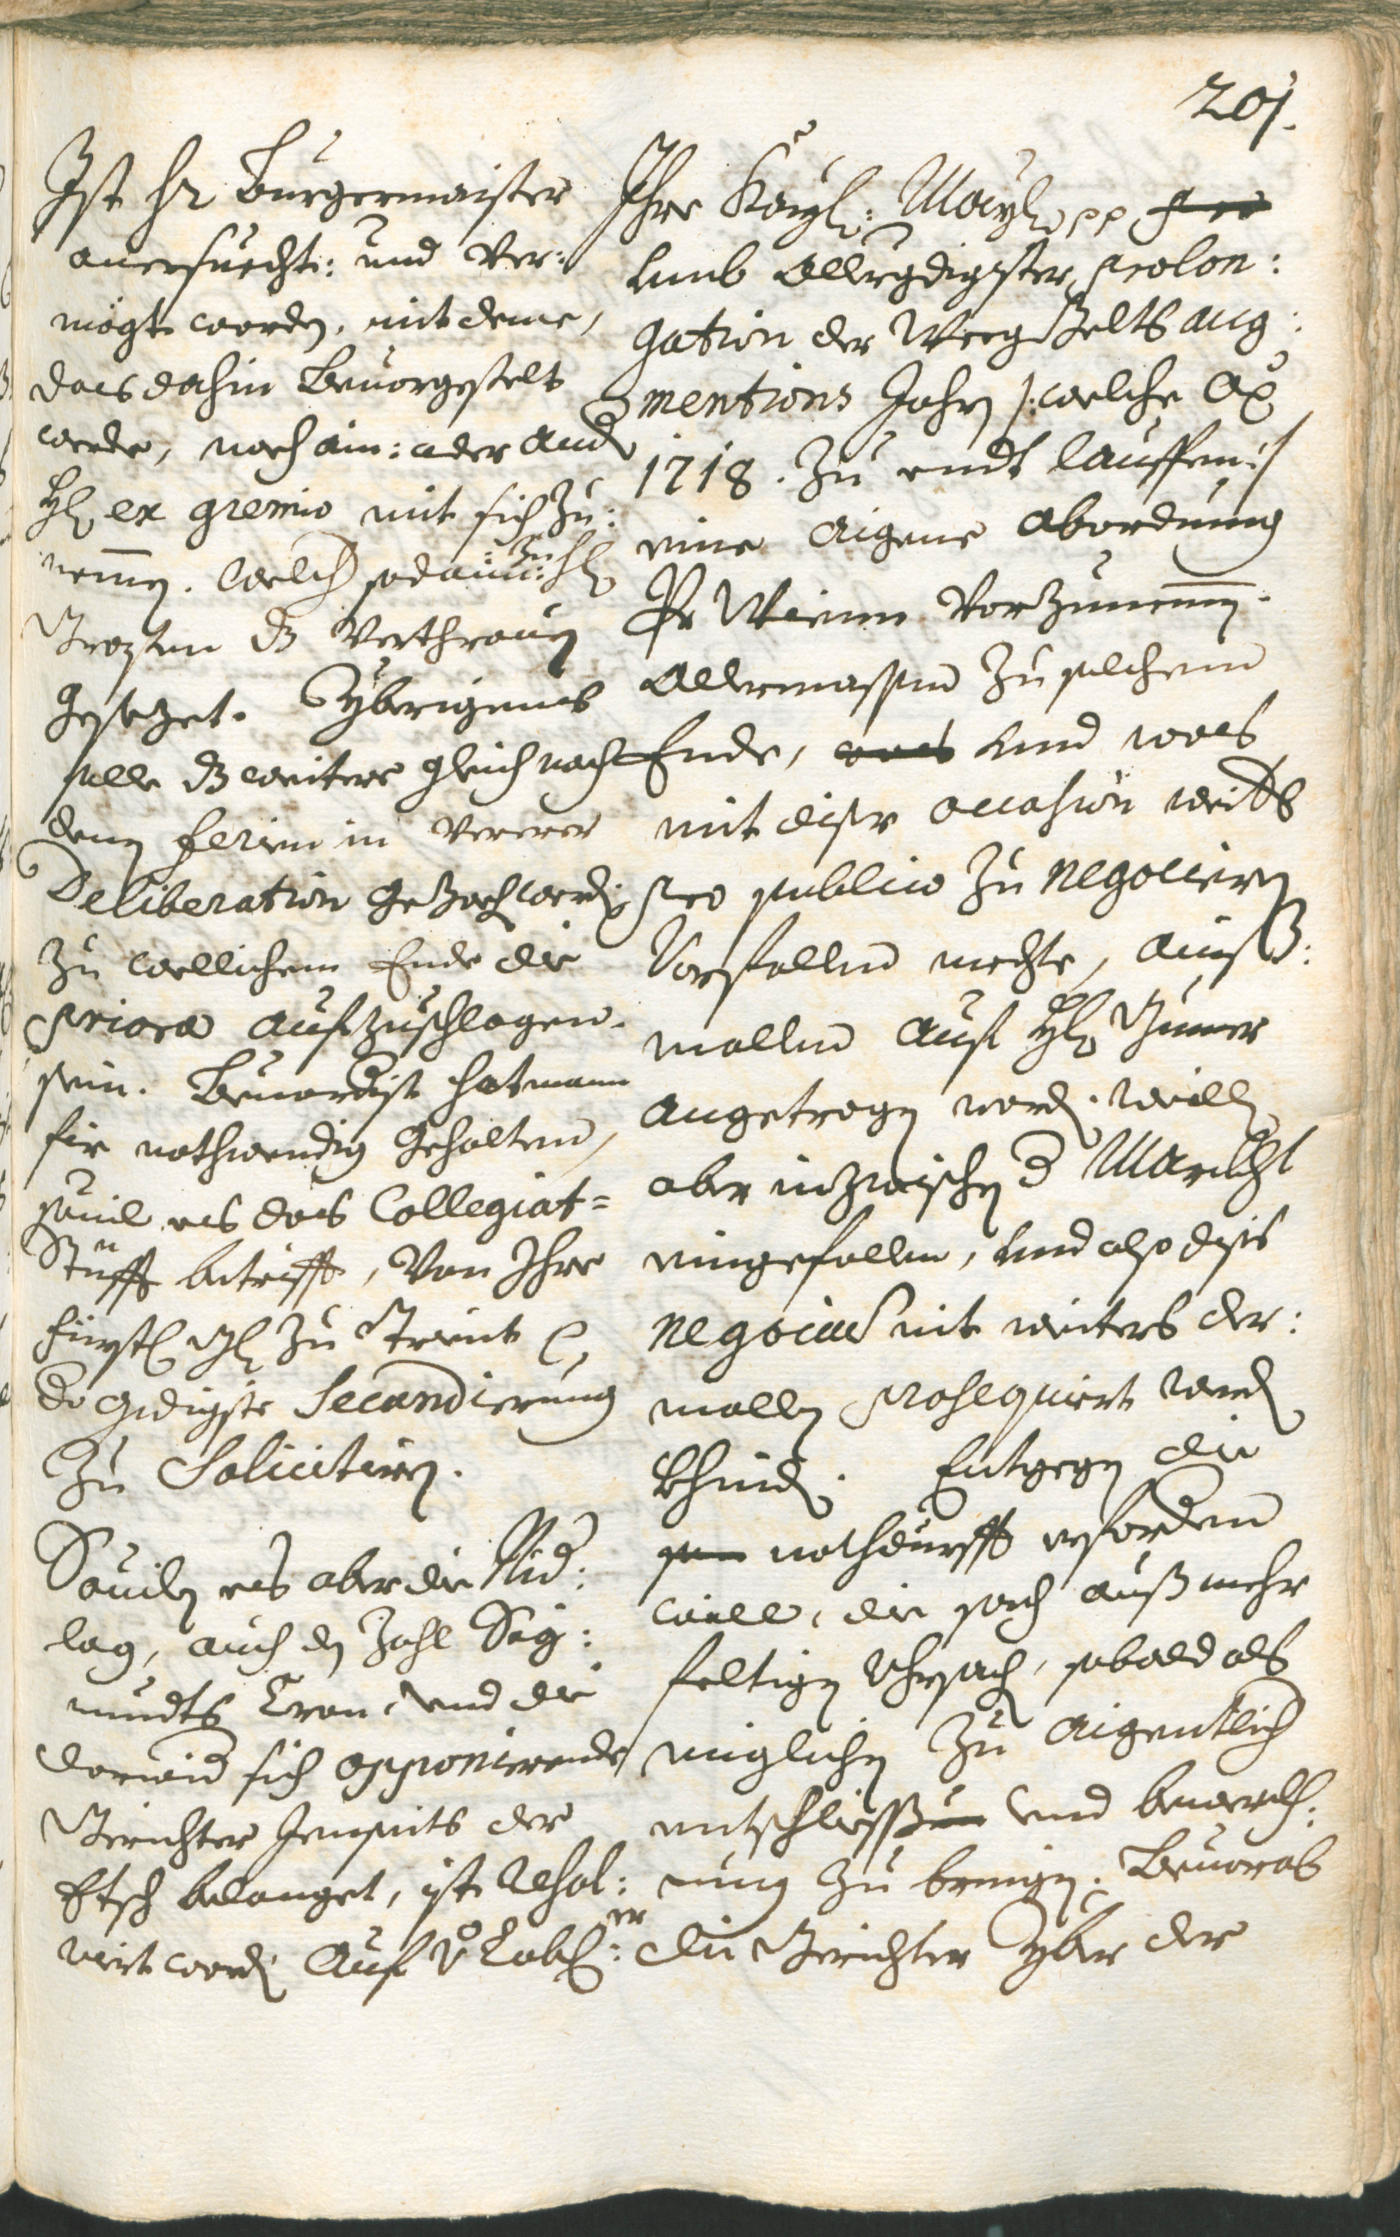 201.
Ist Hr Burgermaister
anersuecht: und Ver:
mögt worden, mit deme,
dass dahin bevorgestelt
werde, noch ain: oder and
H: ex gremio mit sich zu:
nemmen. welch sodann: zu H:
das Verthrauen
gesezet. Ybrigens
solle das weitere gleich nach
denen ferien in verere
Deliberation gezoch werden
zu wellichem Ende die
priora aufzuschlagen
sein. Bevordist hat mann
fir nothwendig gehalten,
sovil es das Collegiat=
Stüfft betrifft, Von Ihro
Fürstl: Gl: zu Trient
die gnedigste Secundierung
zu Solicitiren.
Sovil es aber die Nid:
lag, auch den Zohl Sig:
mundts Cron, und die
darwid sich opponierende
Gerichter Jenseits der
Etsch belanget, ist resol:
virt worden auf d Löbl:er
Ihro Kayl: Mayl: pp pro
umb Allergdigister prolon:
gation der Weeg Gelts aug:
mentions Jahren /: welche Ao
1718. zu endt lauffen :/
eine aigene abordnung
Per Wienn vorzunemmen.
Allermassen zu solchem
Ende, was und was
mit diser occasion weiters
pro publico zu negociren
Vorfallen mechte, ainß:
mallen auf H:
angetragen worden. weillen
aber inzwischen d Marckht
eingefallen, und also dises
negocium nit weiters der:
mallen prosequiert werden
khinden. Entgegen die
nothdurfft erfordern
wille, die sach auß mehr
feltigen Uhrsachen, sobald als
miglichen zu aigentlich
entschliessung und bewerckh:
nung zu bringen. Bevorab
die Gerichter Yber der